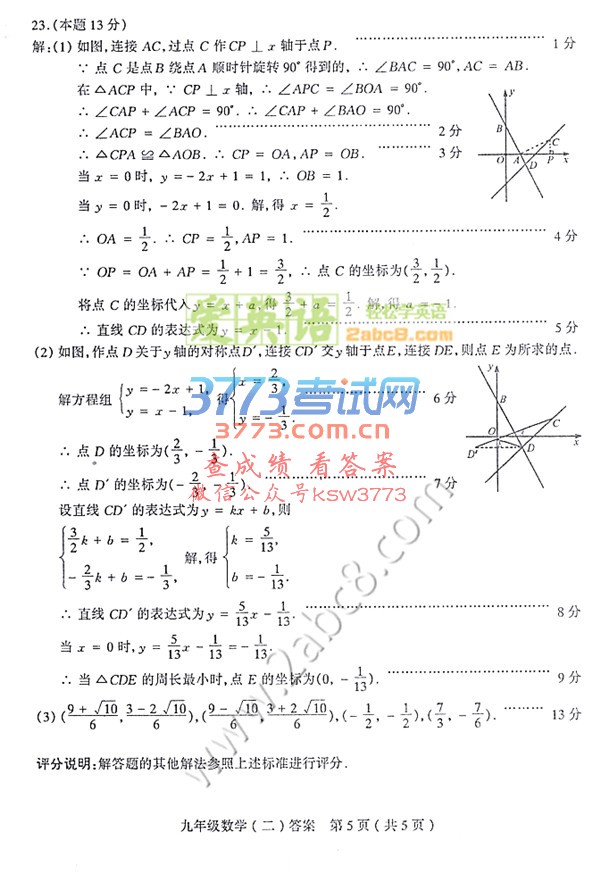 23.(本题13分)
解:(1) 如图,连接 AC,过点 C 作 CP ⊥ x 轴于点P. ………… 1 分
∵ 点 C 是点 B 绕点 A 顺时针旋转 90° 得到的, ∴ ∠BAC = 90°, AC = AB.
在 △ACP 中, ∵ CP ⊥ x 轴, ∴ ∠APC = ∠BOA = 90°.
∴ ∠CAP + ∠ACP = 90°. ∴ ∠CAP + ∠BAO = 90°.
∴ ∠ACP = ∠BAO. ………… 2 分
∴ △CPA ≌ △AOB. ∴ CP = OA, AP = OB. ………… 3 分
当 x = 0 时, y = - 2x + 1 = 1, ∴ OB = 1.
当 y = 0 时, - 2x + 1 = 0. 解,得 x = 1/2.
∴ OA = 1/2. ∴ CP = 1/2, AP = 1. ………… 4 分
∵ OP = OA + AP = 1/2 + 1 = 3/2, ∴ 点 C 的坐标为(3/2, 1/2).
将点 C 的坐标代入 y = x + a,得 3/2 + a = 1/2. 解,得 a = - 1.
∴ 直线 CD 的表达式为 y = x - 1. ………… 5 分
(2) 如图,作点 D 关于 y 轴的对称点 D′,连接 CD′ 交 y 轴于点 E,连接 DE,则点 E 为所求的点.
解方程组 { y = - 2x + 1, y = x - 1, 得 { x = 2/3, y = - 1/3. ………… 6 分
∴ 点 D 的坐标为(2/3, - 1/3).
∴ 点 D′ 的坐标为(- 2/3, - 1/3). ………… 7 分
设直线 CD′ 的表达式为 y = kx + b,则
{ 3/2 k + b = 1/2, - 2/3 k + b = - 1/3, 解,得 { k = 5/13, b = - 1/13.
∴ 直线 CD′ 的表达式为 y = 5/13 x - 1/13. ………… 8 分
当 x = 0 时, y = 5/13 x - 1/13 = - 1/13.
∴ 当 △CDE 的周长最小时,点 E 的坐标为(0, - 1/13). ………… 9 分
(3) ((9 + √10)/6, (3 - 2√10)/6), ((9 - √10)/6, (3 + 2√10)/6), (- 1/2, - 1/2), (7/3, - 7/6). ……… 13 分
评分说明:解答题的其他解法参照上述标准进行评分.
九年级数学(二)答案 第5页(共5页)
y
B
C
O A D P x
y
B
C
O
D′ D x
爱英语
轻松学英语
2abc8.com
3773考试网
3773.com.cn
查成绩 看答案
微信公众号ksw3773
www.2abc8.com